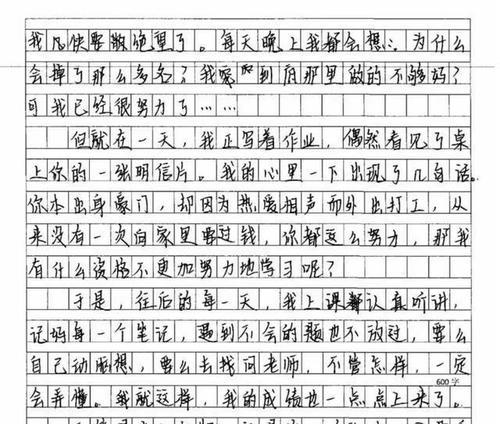 我几快要散绝望了。每天晚上我都会想：为什么
会掉了那么多名？我到底那里做的不够好？
可我已经很努力了……
但就在一天，我正写着作业，偶然看见了桌
上你的一张明信片。我的心里一下出现了几句话。
你本出身豪门，却因为热爱相声而外出打工，从
来没有一次向家里要过钱，你都这么努力，那我
有什么资格不更加努力地学习呢？
于是，往后的每一天，我上课都认真听讲，
记好每一个笔记，遇到不会的题也不放过，要么
自己动脑想，要么去找问老师，不管怎样，一定
600字
会弄懂。我就这样，我的成绩也一点点上来了。